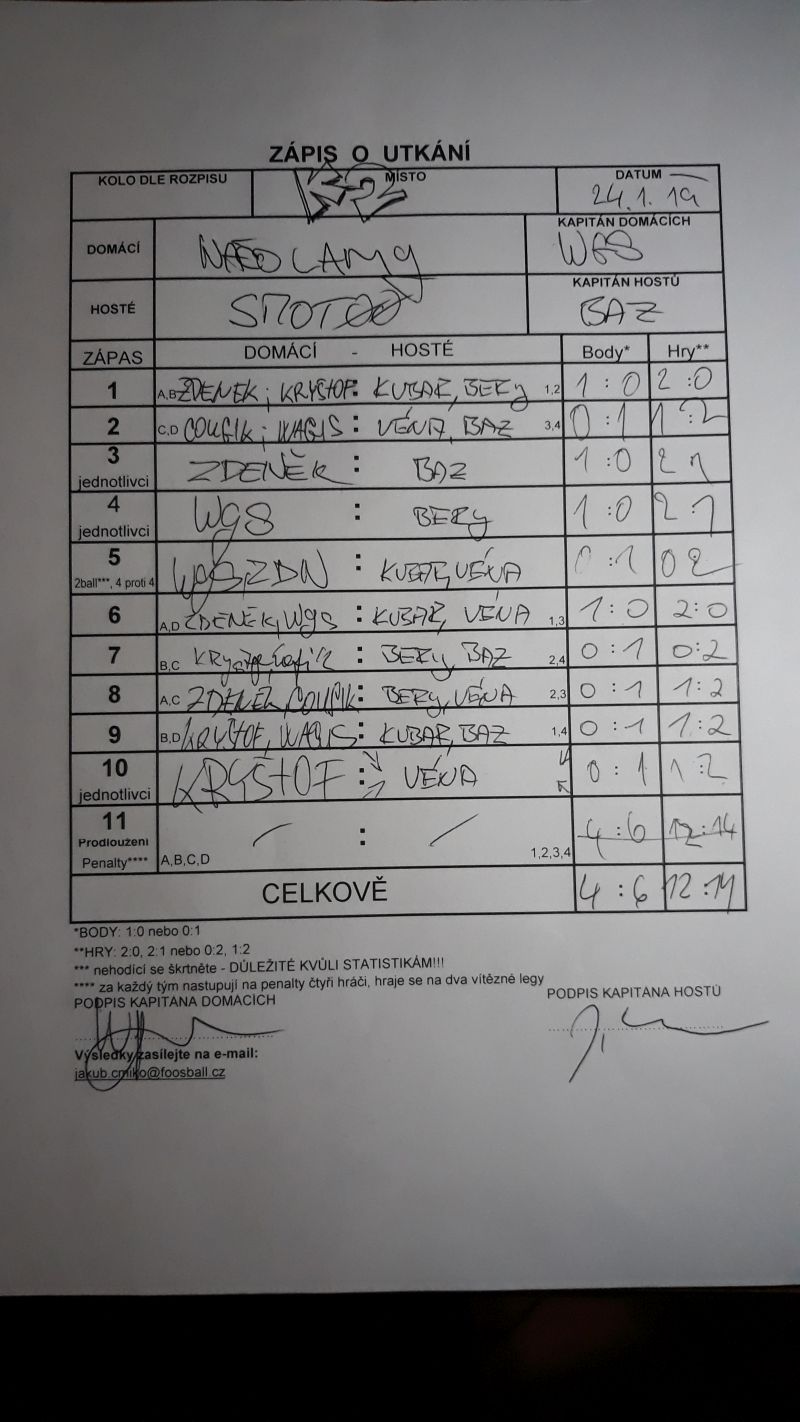 ZÁPIS O UTKÁNÍ
KOLO DLE ROZPISU MÍSTO DATUM
24.1.19
DOMÁCÍ KAPITÁN DOMÁCÍCH
WGS
HOSTÉ KAPITÁN HOSTŮ
BAZ
ZÁPAS DOMÁCÍ - HOSTÉ Body* Hry**
1 A,B ZDENEK, KRYSTOF : KUBAŘ, BERY 1,2 1:0 2:0
2 C,D COUFIK, WAGIS : VÉNA, BAZ 3,4 0:1 1:2
3 jednotlivci ZDENĚK : BAZ 1:0 2 1
4 jednotlivci WGS : BERY 1:0 2:1
5 2ball***, 4 proti 4 WGS, ZDN : KUBAŘ, VÉNA 0:1 0 2
6 A,D ZDENĚK, WGS : KUBAŘ, VÉNA 1,3 1:0 2:0
7 B,C : BERY, BAZ 2,4 0:1 0:2
8 A,C ZDENEK, COUFIK : BERY, VÉNA 2,3 0:1 1:2
9 B,D KRYŠTOF, WAGIS : KUBAŘ, BAZ 1,4 0:1 1:2
10 jednotlivci KRYŠTOF : VÉNA 0:1 1:2
11 Prodloužení Penalty**** A,B,C,D : 1,2,3,4 4:6 12:14
CELKOVĚ 4:6 12:14
*BODY: 1:0 nebo 0:1
**HRY: 2:0, 2:1 nebo 0:2, 1:2
*** nehodící se škrtněte - DŮLEŽITÉ KVŮLI STATISTIKÁM!!!
**** za každý tým nastupují na penalty čtyři hráči, hraje se na dva vítězné legy
PODPIS KAPITÁNA DOMÁCÍCH PODPIS KAPITÁNA HOSTŮ
Výsledky zasílejte na e-mail: